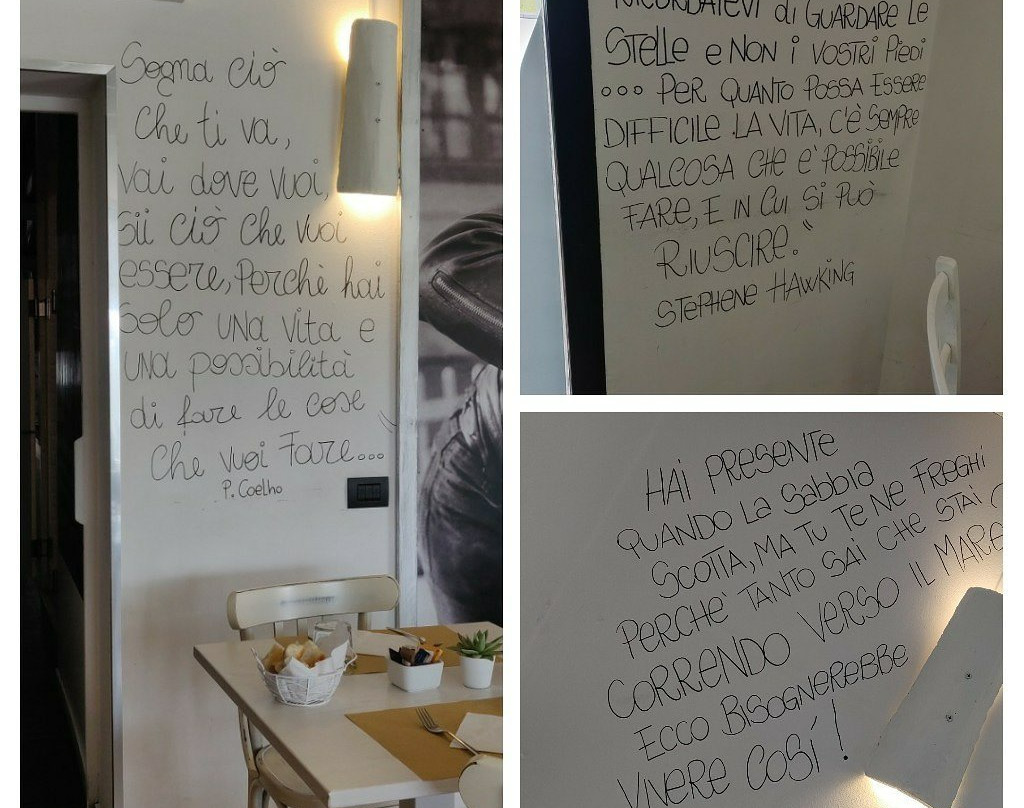 Sogna ciò
che ti va,
vai dove vuoi,
sii ciò che vuoi
essere, perchè hai
solo una vita e
una possibilità
di fare le cose
che vuoi fare...
P. Coelho
RICORDATEVI di GUARDARE LE
STELLE e NON i VOSTRI PIEDI
... PER QUANTO POSSA ESSERE
DIFFICILE LA VITA, C'È SEMPRE
QUALCOSA CHE E' POSSIBILE
FARE, E IN CUI SI PUÒ
RIUSCIRE."
STEPHENE HAWKING
HAI PRESENTE
QUANDO LA SABBIA
SCOTTA, MA TU TE NE FREGHI
PERCHE' TANTO SAI CHE STAI
CORRENDO VERSO IL MARE
ECCO BISOGNEREBBE
VIVERE COSÍ!